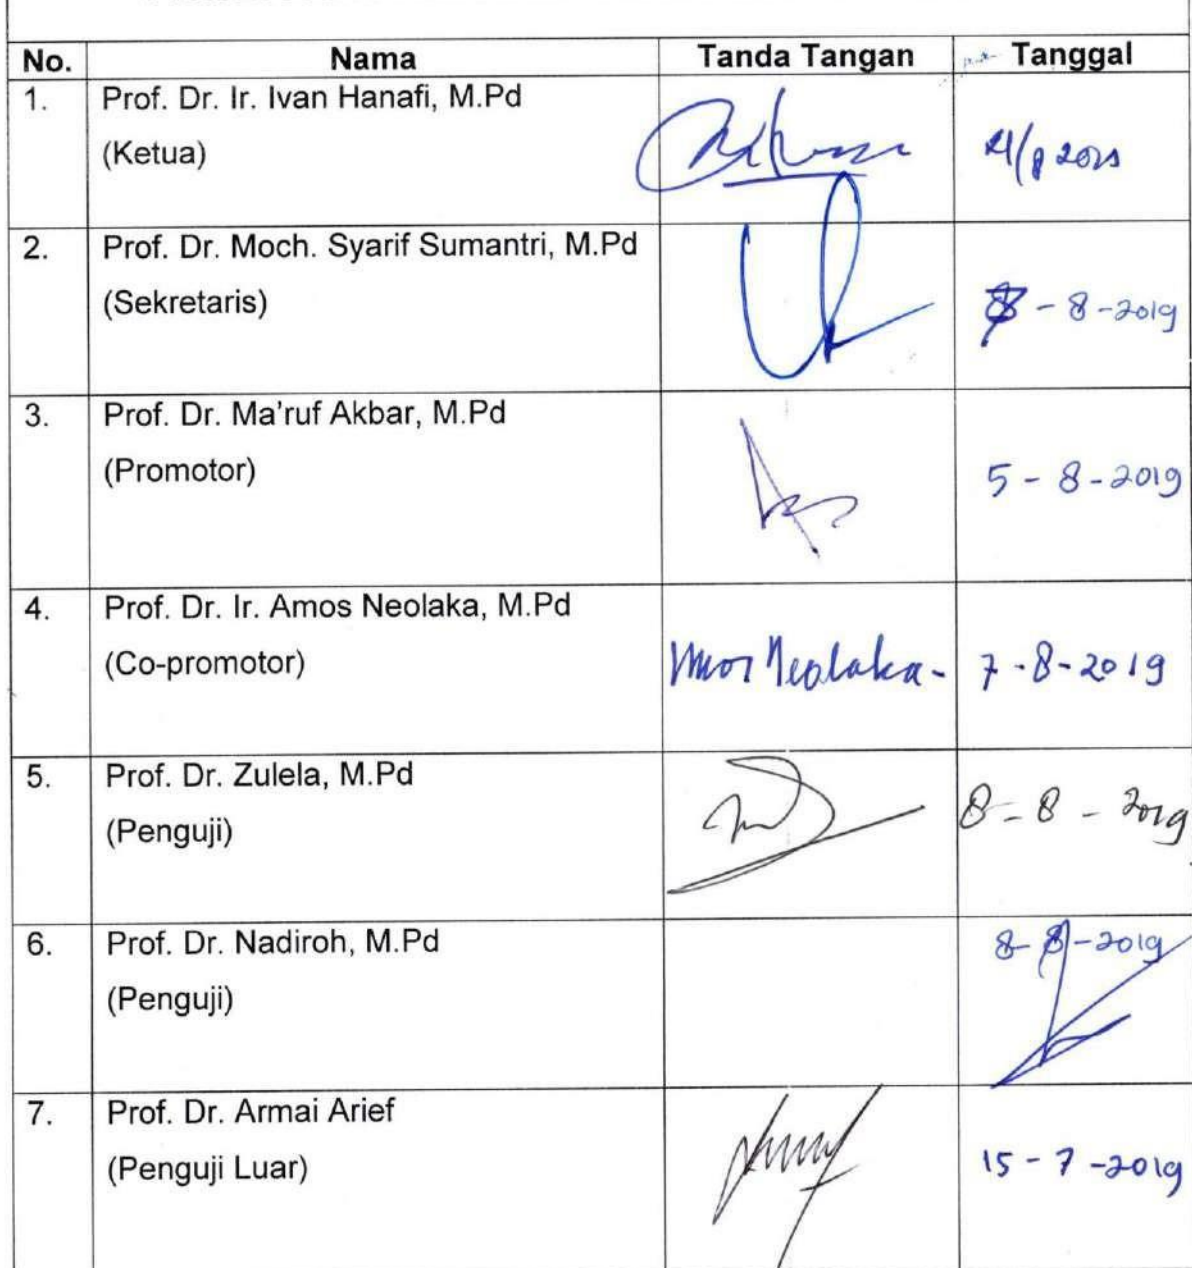 No. Nama Tanda Tangan Tanggal
1. Prof. Dr. Ir. Ivan Hanafi, M.Pd
(Ketua)
2. Prof. Dr. Moch. Syarif Sumantri, M.Pd
(Sekretaris) 8 - 8 - 2019
3. Prof. Dr. Ma'ruf Akbar, M.Pd
(Promotor) 5 - 8 - 2019
4. Prof. Dr. Ir. Amos Neolaka, M.Pd
(Co-promotor) Amos Neolaka - 7 - 8 - 2019
5. Prof. Dr. Zulela, M.Pd
(Penguji) 8 - 8 - 2019
6. Prof. Dr. Nadiroh, M.Pd 8 - 8 - 2019
(Penguji)
7. Prof. Dr. Armai Arief
(Penguji Luar) 15 - 7 - 2019